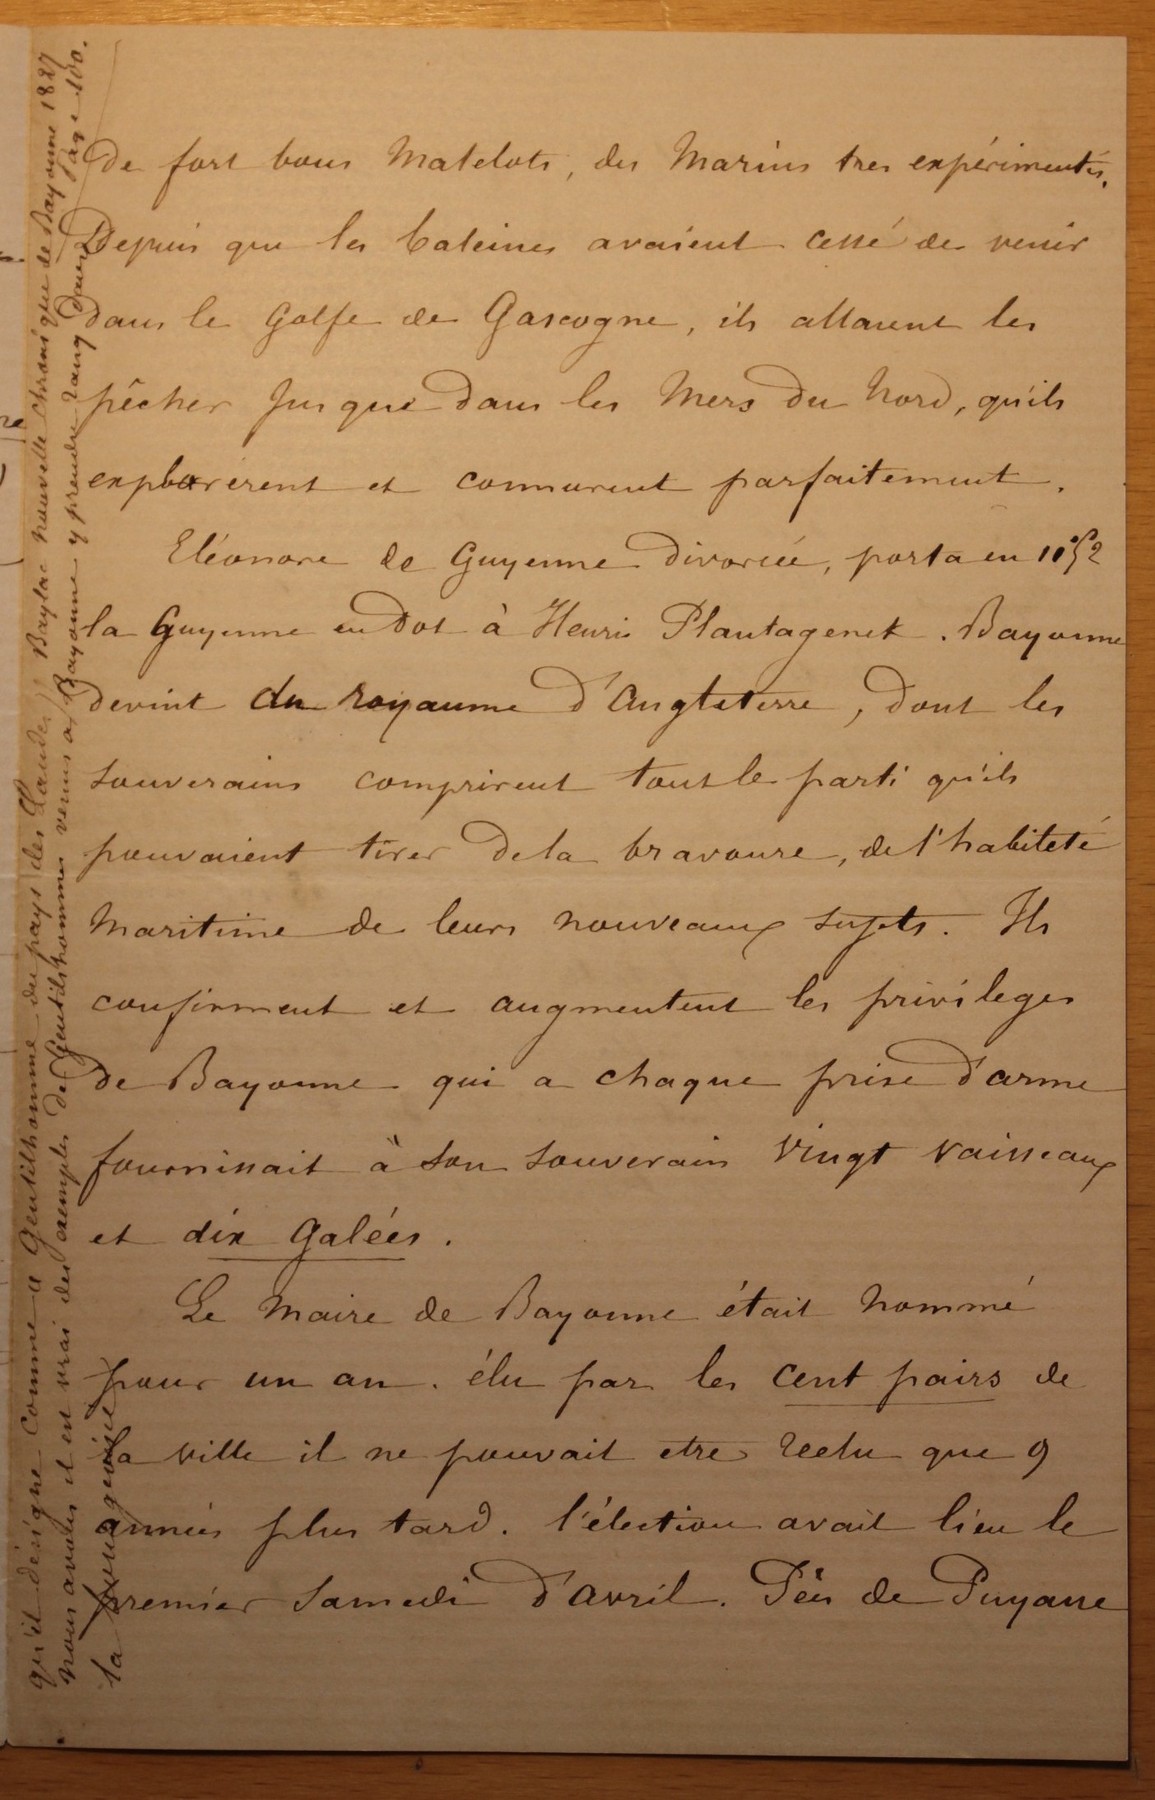 de fort bons Matelots, des Marins tres expérimentés.
Depuis que les baleines avaient cessé de venir
dans le Golfe de Gascogne, ils allaient les
pêcher Jusque dans les Mers du Nord, qu'ils
explorèrent et connurent parfaitement.
Eléonore de Guyenne divorcée, porta en 1152
la Guyenne en dot à Henri Plantagenet. Bayonne
devint du royaume d'Angleterre, dont les
souverains comprirent tout le parti qu'ils
pouvaient tirer de la bravoure, de l'habileté
Maritime de leurs nouveaux sujets. Ils
confirment et augmentent les privileges
de Bayonne qui a chaque prise d'arme
fournissait à son souverain vingt vaisseaux
et dix Galées.
Le Maire de Bayonne était nommé
pour un an. élu par les cent pairs de
la ville il ne pouvait etre reelu que 9
années plus tard. l'élection avait lieu le
premier Samedi d'avril. Pées de Puyane
qu'il désigne comme a Gentilhomme du pays des Landes, Baylac nouvelle chronique de Bayonne 1827
nous avons il est vrai des exemples de Gentilshommes venus a Bayonne y prendre rang dans page 100.
la bourgeoisie